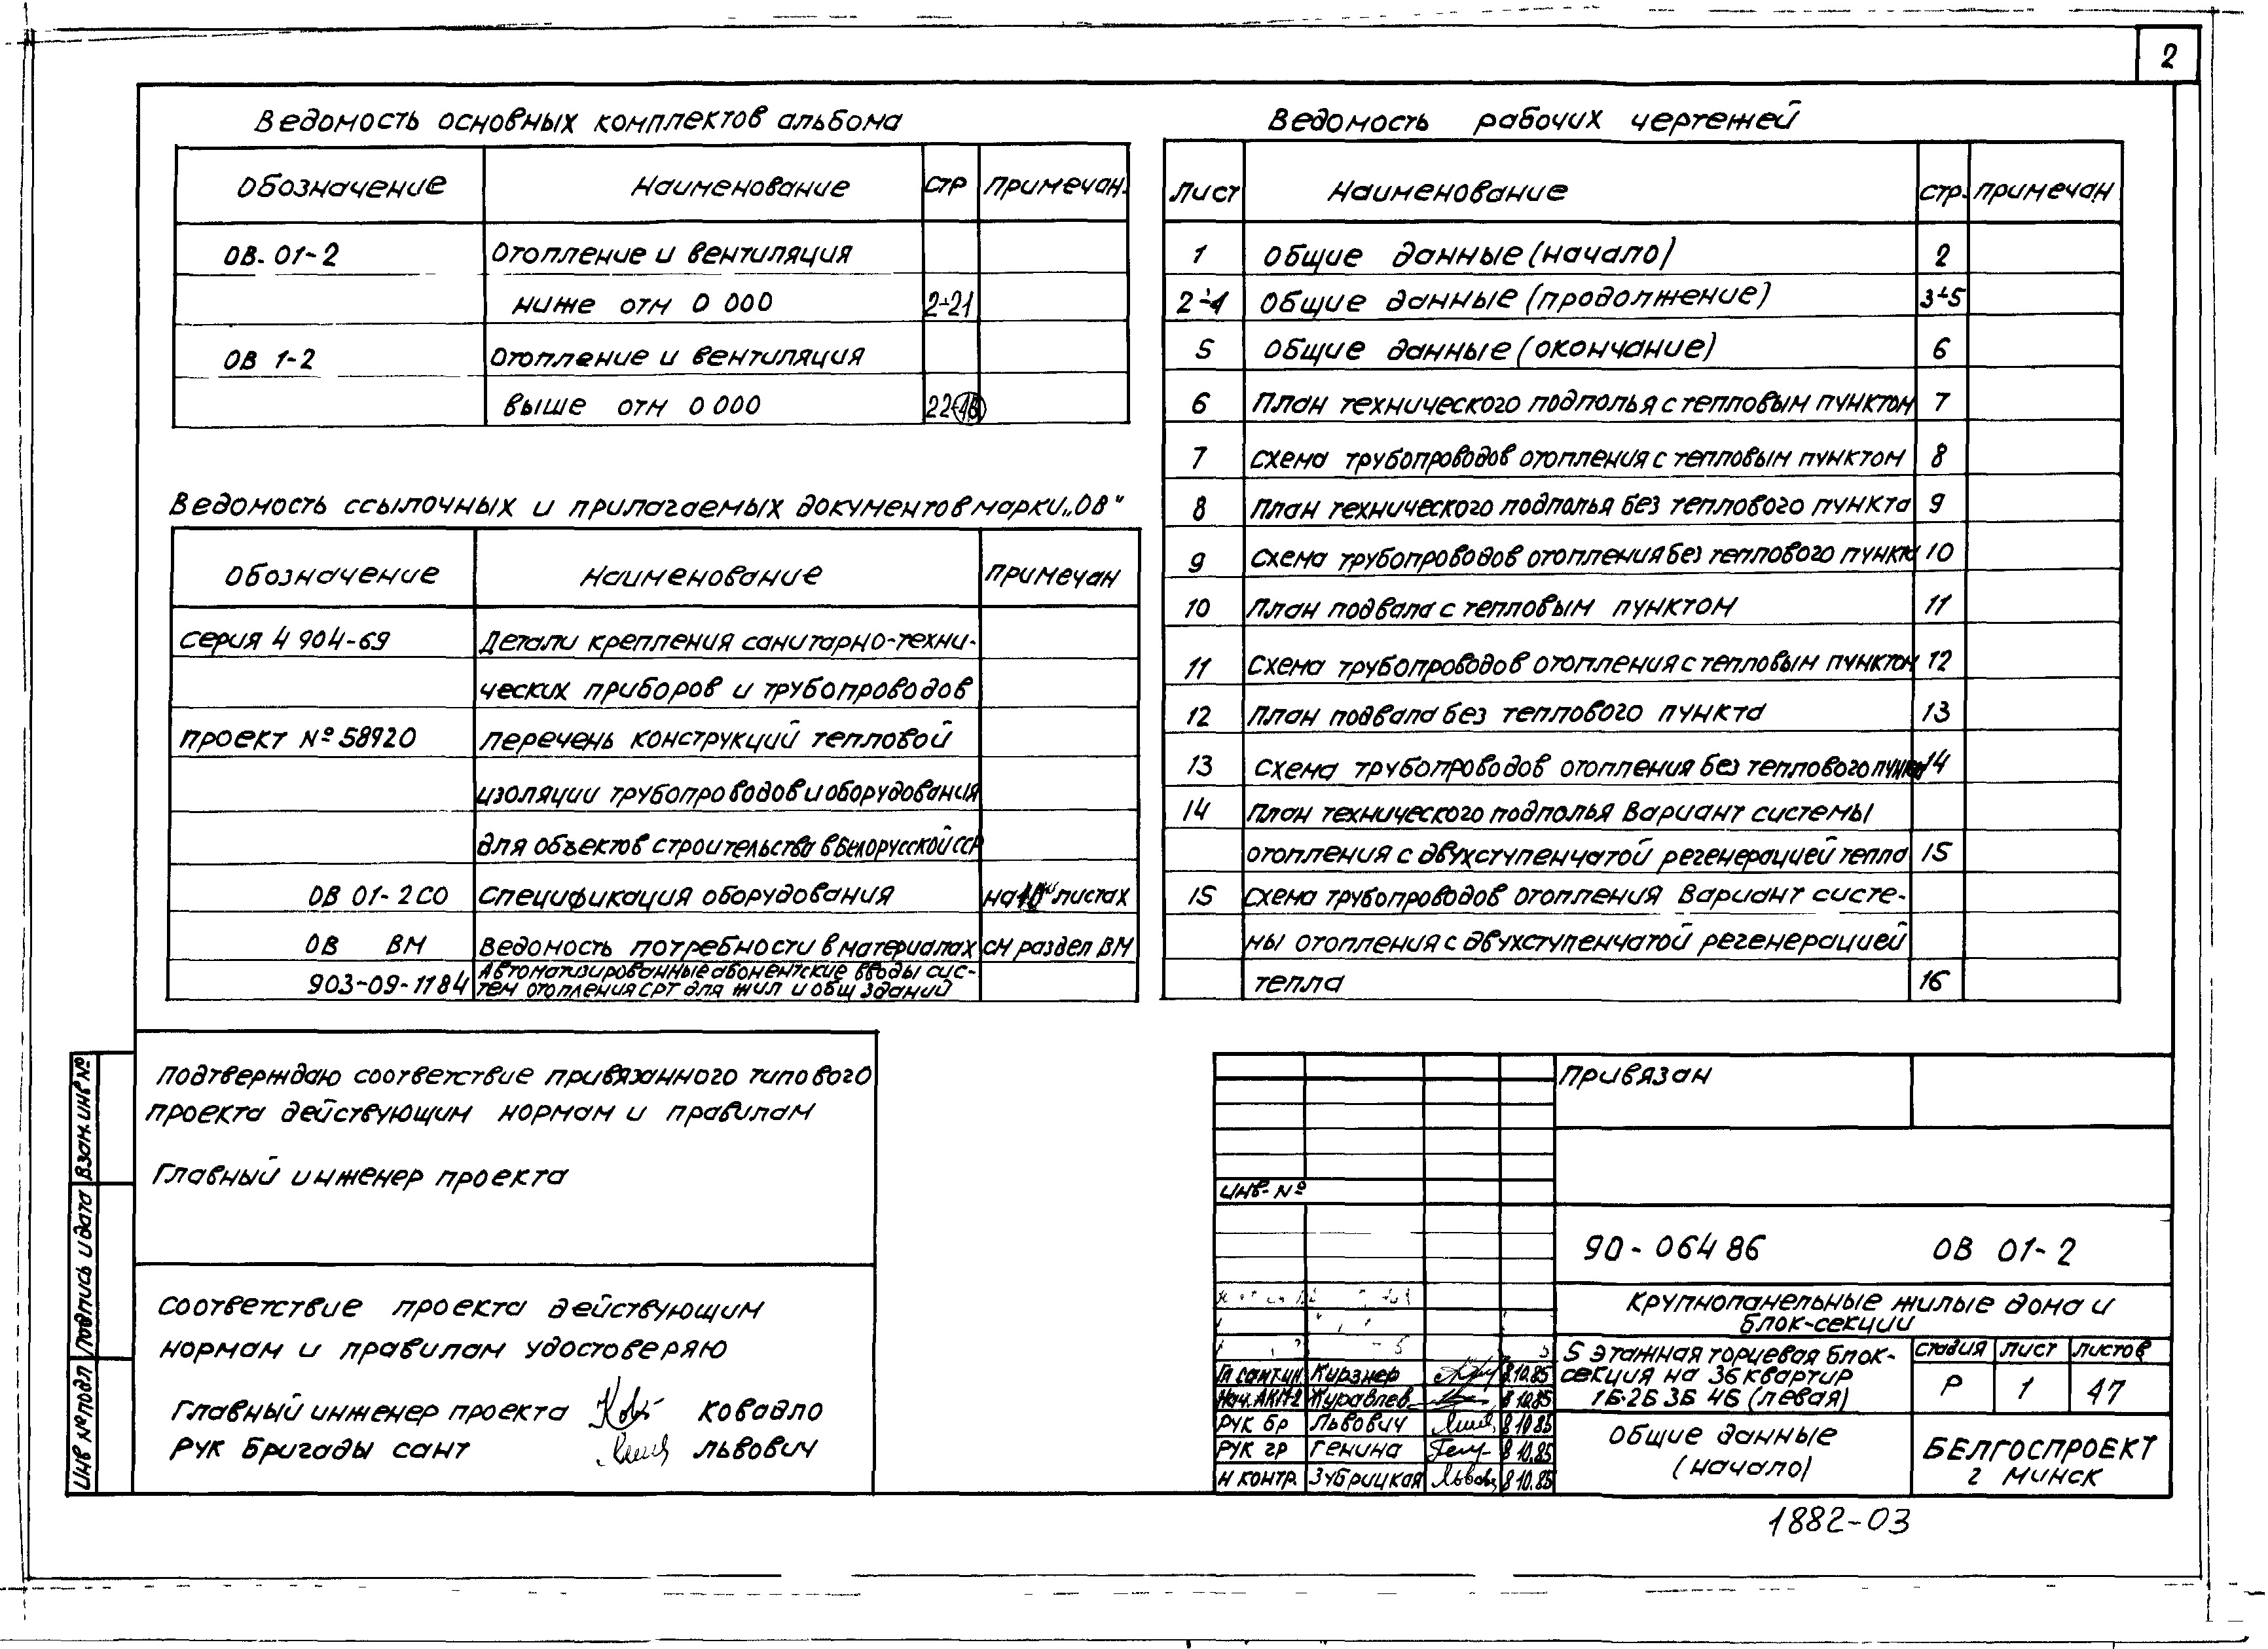 2
Ведомость основных комплектов альбома
Обозначение Наименование стр примечан.
ОВ. 01-2 Отопление и вентиляция
ниже отм 0 000 2÷21
ОВ 1-2 Отопление и вентиляция
выше отм 0 000 22÷
Ведомость ссылочных и прилагаемых документов марки „ОВ"
Обозначение Наименование примечан
серия 4 904-69 Детали крепления санитарно-техни-
ческих приборов и трубопроводов
проект №58920 перечень конструкций тепловой
изоляции трубопроводов и оборудования
для объектов строительства в Белорусской ССР
ОВ 01-2 СО Спецификация оборудования на листах
ОВ ВМ Ведомость потребности в материалах см раздел ВМ
903-09-11 84 Автоматизированные абонентские вводы сис-
тем отопления СРТ для жил и общ зданий
Ведомость рабочих чертежей
Лист Наименование стр. примечан
1 Общие данные (начало) 2
2÷4 Общие данные (продолжение) 3÷5
5 Общие данные (окончание) 6
6 План технического подполья с тепловым пунктом 7
7 Схема трубопроводов отопления с тепловым пунктом 8
8 План технического подполья без теплового пункта 9
9 Схема трубопроводов отопления без теплового пункта 10
10 План подвала с тепловым пунктом 11
11 Схема трубопроводов отопления с тепловым пунктом 12
12 План подвала без теплового пункта 13
13 Схема трубопроводов отопления без теплового пункта 14
14 План технического подполья Вариант системы
отопления с двухступенчатой регенерацией тепла 15
15 Схема трубопроводов отопления Вариант систе-
мы отопления с двухступенчатой регенерацией
тепла 16
Подтверждаю соответствие привязанного типового
проекта действующим нормам и правилам
Главный инженер проекта
Соответствие проекта действующим
нормам и правилам удостоверяю
Главный инженер проекта Ковадло
Рук бригады сант Львович
Взам. инв №
Подпись и дата
Инв № подл
Привязан
Инв. №
90-064 86 ОВ 01-2
Крупнопанельные жилые дома и
блок-секции
5 этажная торцевая блок-
секция на 36 квартир
1Б.2Б 3Б 4Б (левая)
стадия лист листов
Р 1 47
Гл сантин Курзнер 8.10.85
Нач. АКМ-2 Журавлев 8 10.85
Рук бр Львович 8 10.85
Рук гр Генина 8 10.85
Н контр. Зубрицкая 8 10.85
Общие данные
(начало)
БЕЛГОСПРОЕКТ
г Минск
1882-03